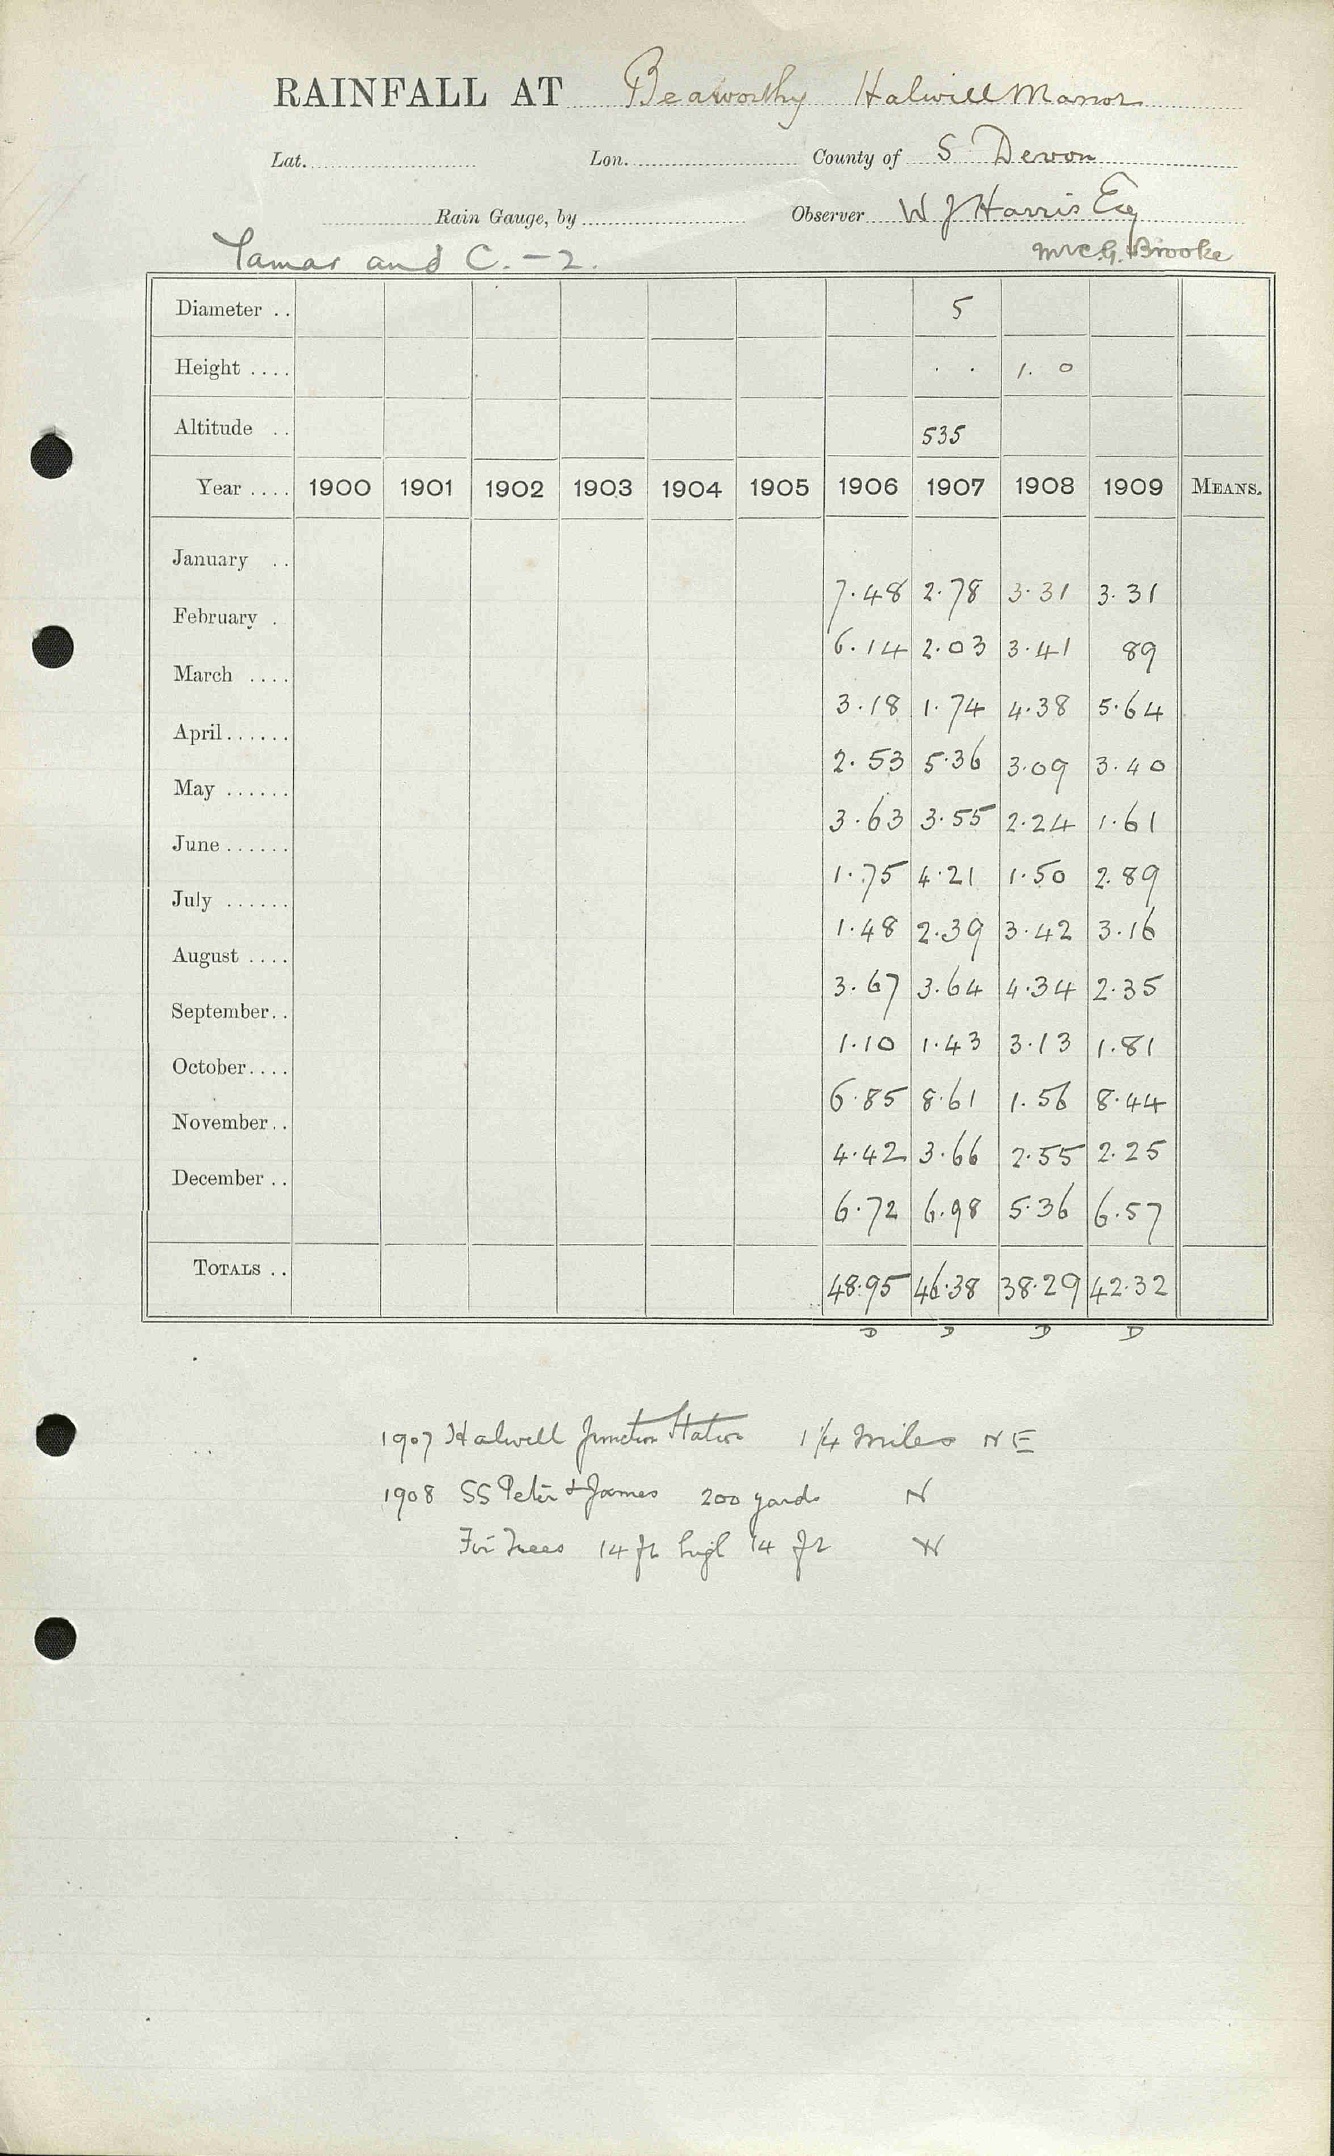 RAINFALL AT Beaworthy Halwill Manor
Lat. Lon. County of S Devon
Rain Gauge, by Observer W J Harris Esq
Tamar and C. - 2. Mr C.G. Brooke
Diameter .. 5
Height .... . . 1. 0
Altitude .. 535
Year .... 1900 1901 1902 1903 1904 1905 1906 1907 1908 1909 MEANS.
January .. 7.48 2.78 3.31 3.31
February . 6.14 2.03 3.41 89
March .... 3.18 1.74 4.38 5.64
April...... 2.53 5.36 3.09 3.40
May ...... 3.63 3.55 2.24 1.61
June ...... 1.75 4.21 1.50 2.89
July ...... 1.48 2.39 3.42 3.16
August .... 3.67 3.64 4.34 2.35
September.. 1.10 1.43 3.13 1.81
October.... 6.85 8.61 1.56 8.44
November.. 4.42 3.66 2.55 2.25
December .. 6.72 6.98 5.36 6.57
TOTALS .. 48.95 46.38 38.29 42.32
D D D D
1907 Halwell Junction Station 1 1/4 miles N E
1908 SS Peter & James 200 yards N
Fir Trees 14 ft high 14 ft W